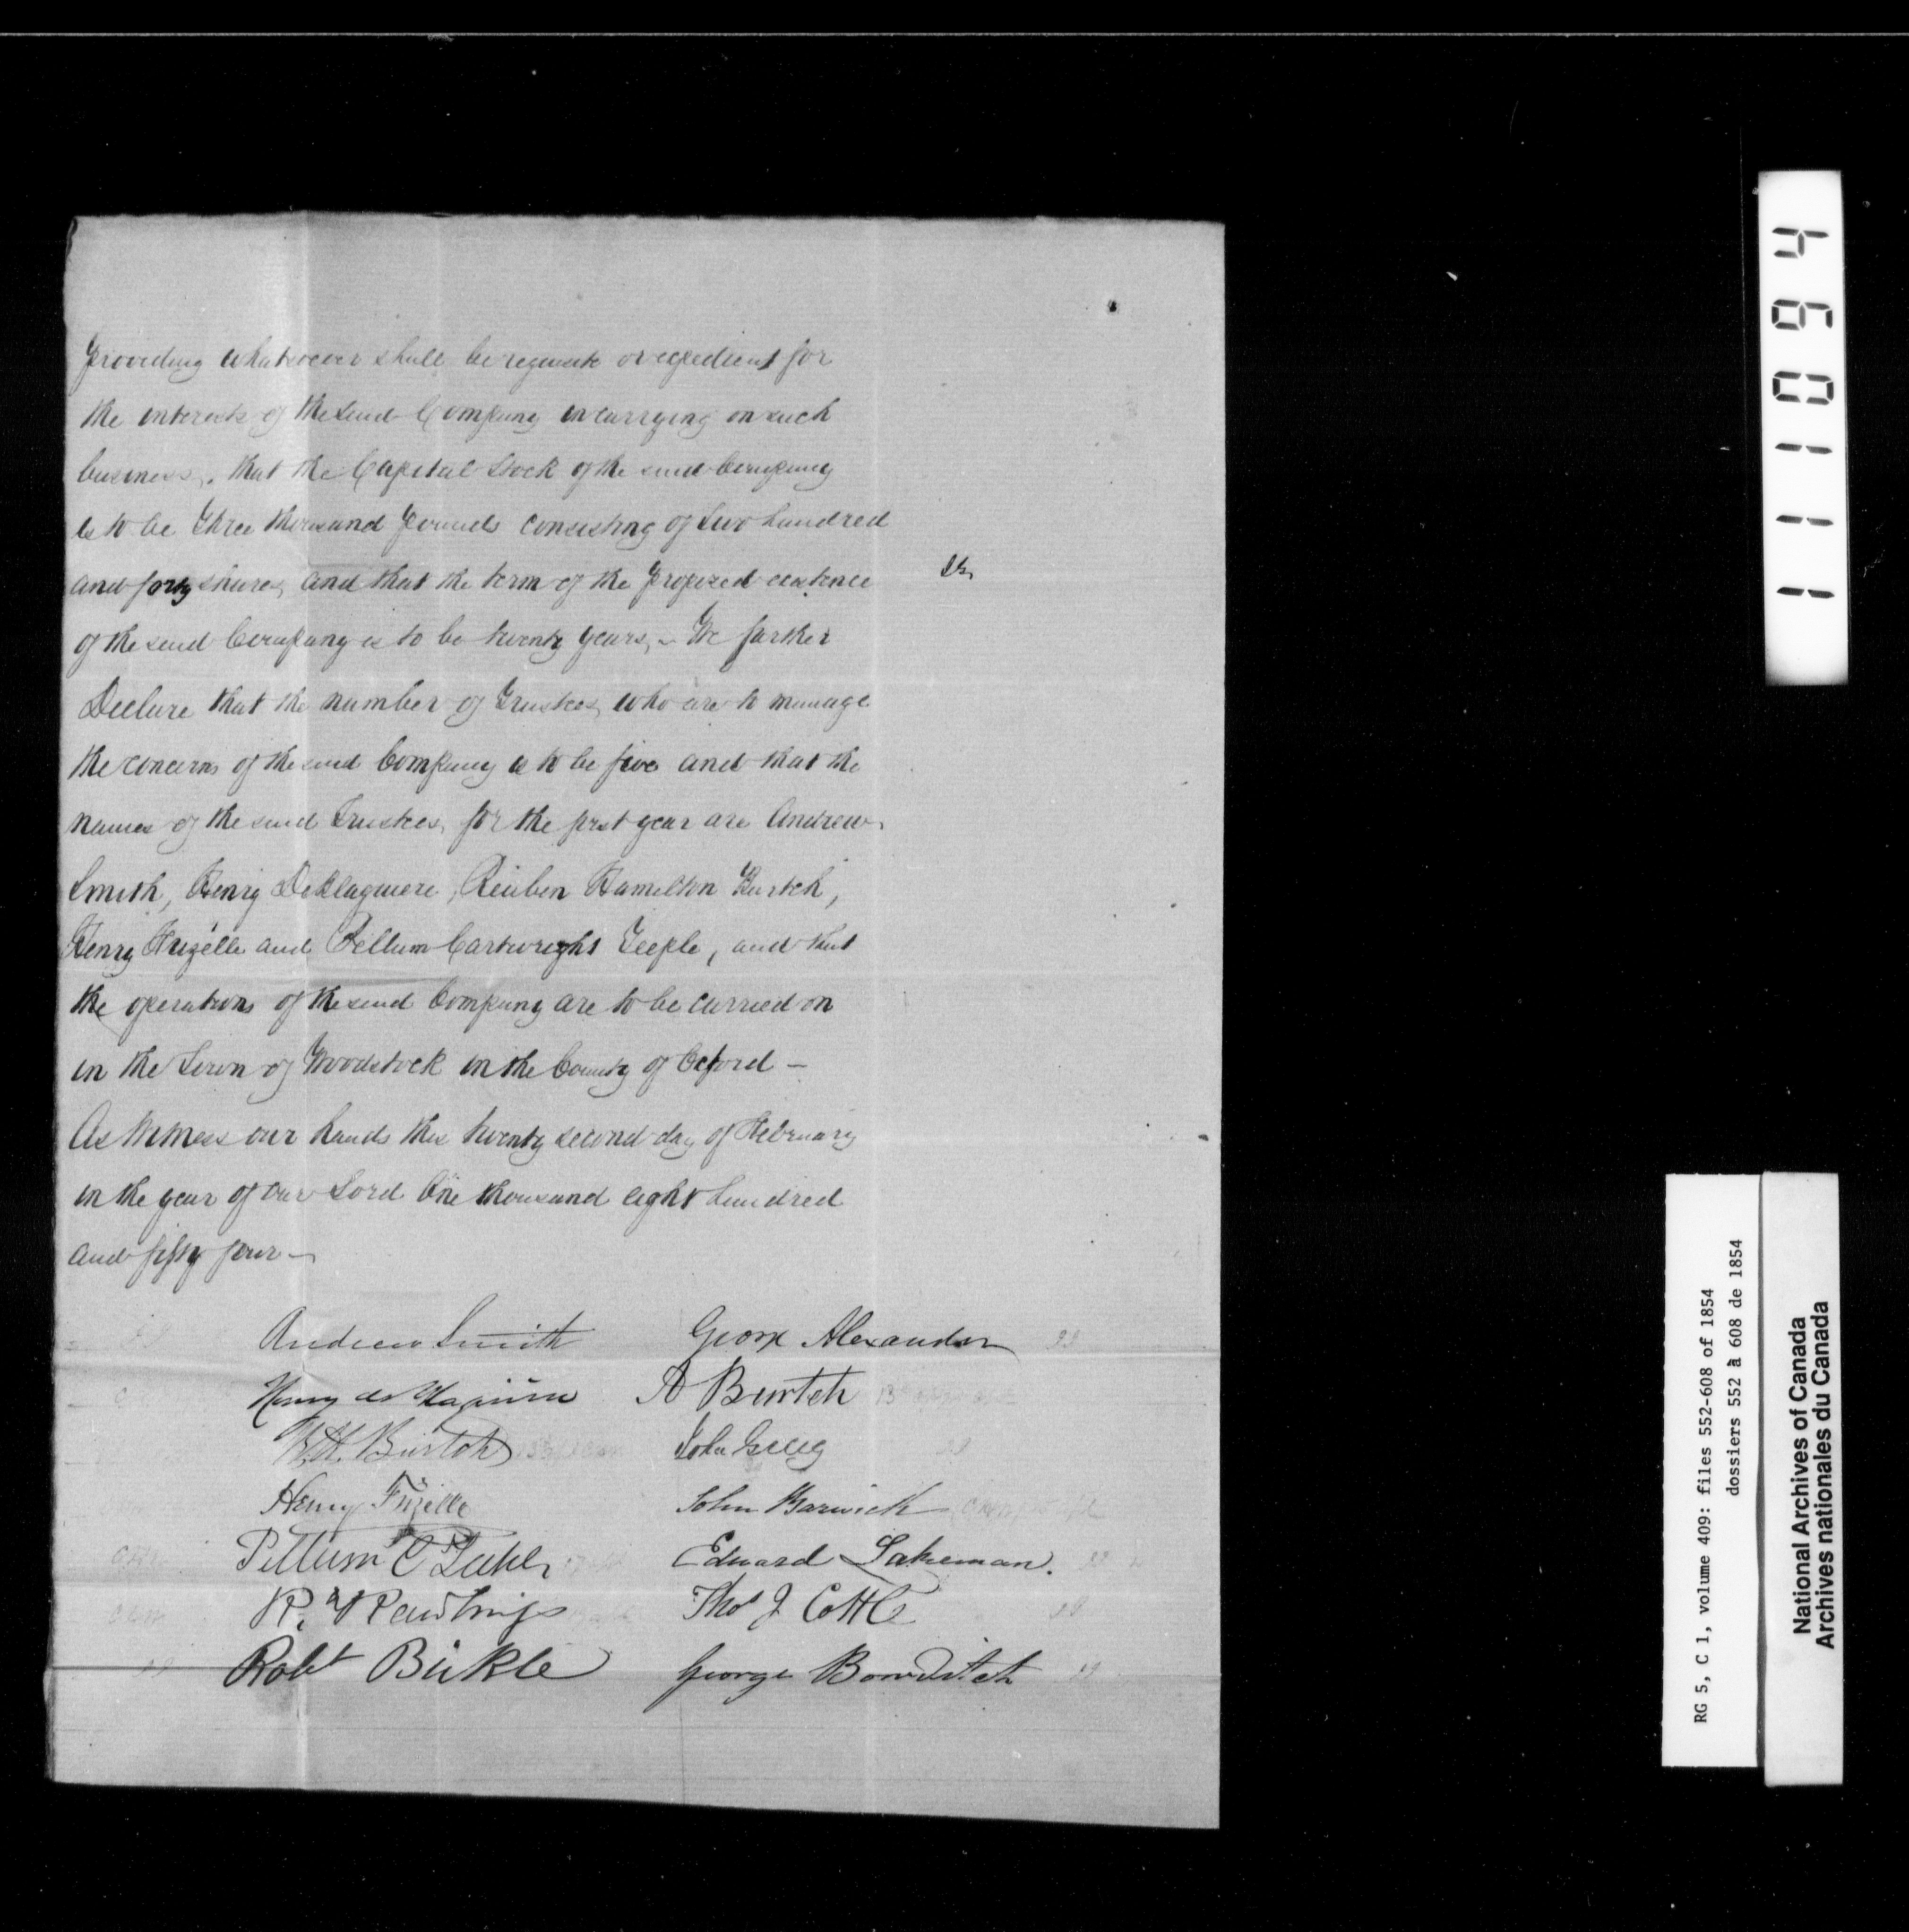 Providing whatsoever shall be requisite or expedient for
the interests of the said Company in carrying on such
business, that the Capital Stock of the said Company
is to be Three thousand Pounds consisting of two hundred
and forty shares, and that the term of the proposed existence
of the said Company is to be twenty years, – We further
Declare that the number of Trustees, who are to manage
the concerns of the said Company is to be five and that the
names of the said Trustees, for the first year are Andrew
Smith, Henry DeBlaquiere, Reuben Hamilton Burtch,
Henry Frizelle and Pellum Cartwright Teeple, and that
the operations of the said Company are to be carried on
in the Town of Woodstock in the County of Oxford –
As Witness our hands this twenty second day of February
in the year of our Lord One thousand eight hundred
and fifty four –
Andrew Smith George Alexander
Henry de Blaquiere A Burtch
R.H. Burtch John Greig
Henry Frizelle John Barwick
Pellum C Teeple Edward Lakeman.
R. Rawlings Thos J Cottle
Robt Bickle George Bowditch
1 1 1 0 9 4
RG 5, C 1, volume 409: files 552-608 of 1854
dossiers 552 à 608 de 1854
National Archives of Canada
Archives nationales du Canada